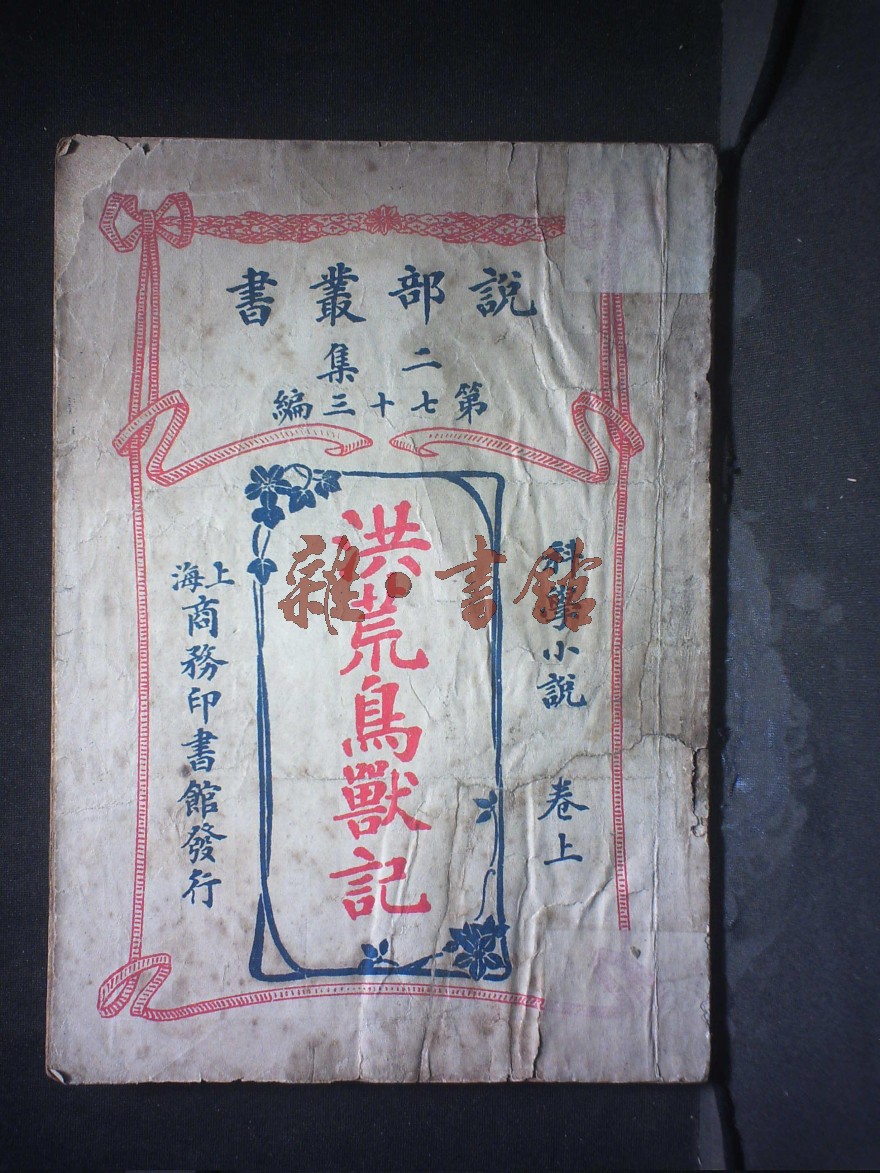 說部叢書
二集
第七十三編
科學小說 卷上
洪荒鳥獸記
上海商務印書館發行
雜·書館